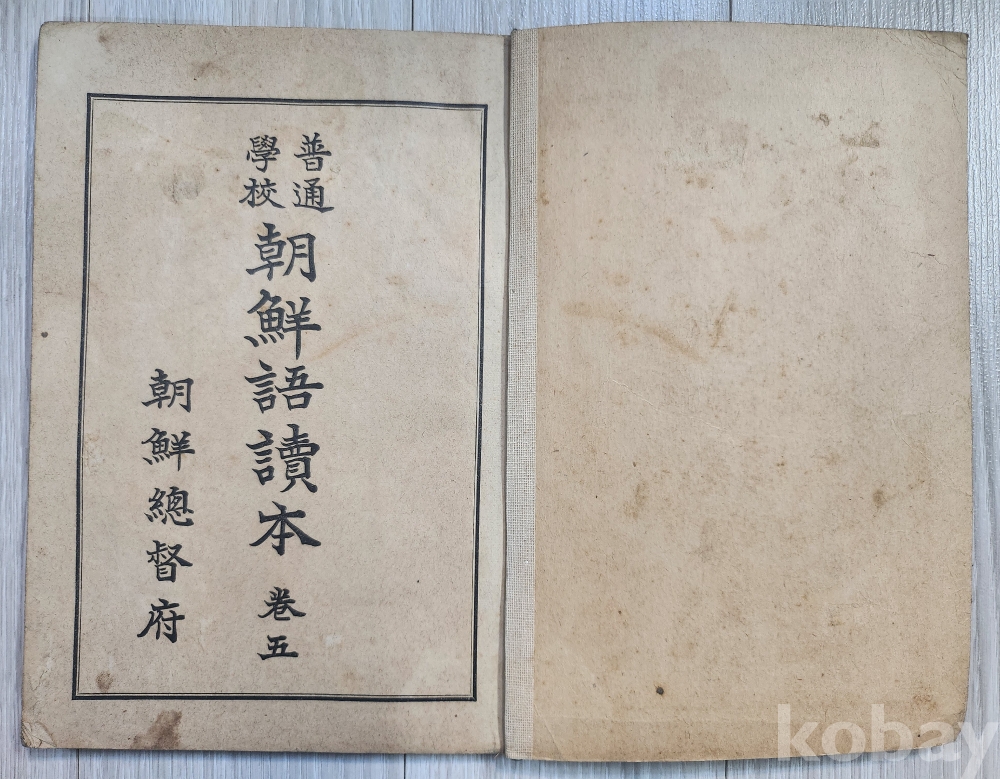 普通
學校
朝鮮語讀本 卷五
朝鮮總督府
kobay